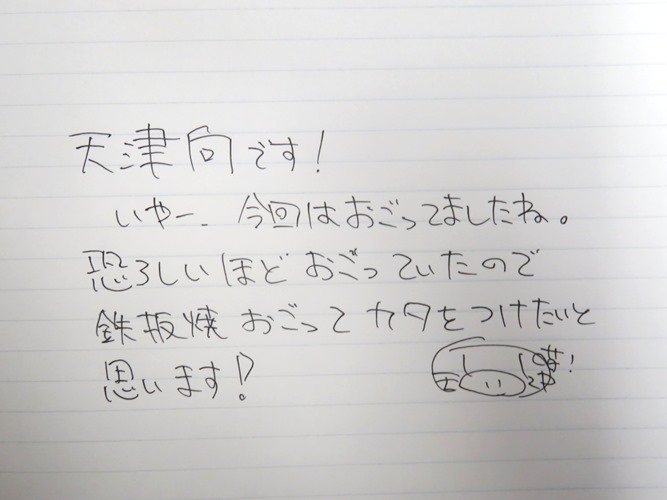 天津向です!
いやー、今回はおごってましたね。
恐ろしいほどおごっていたので
鉄板焼おごってカタをつけたいと
思います!